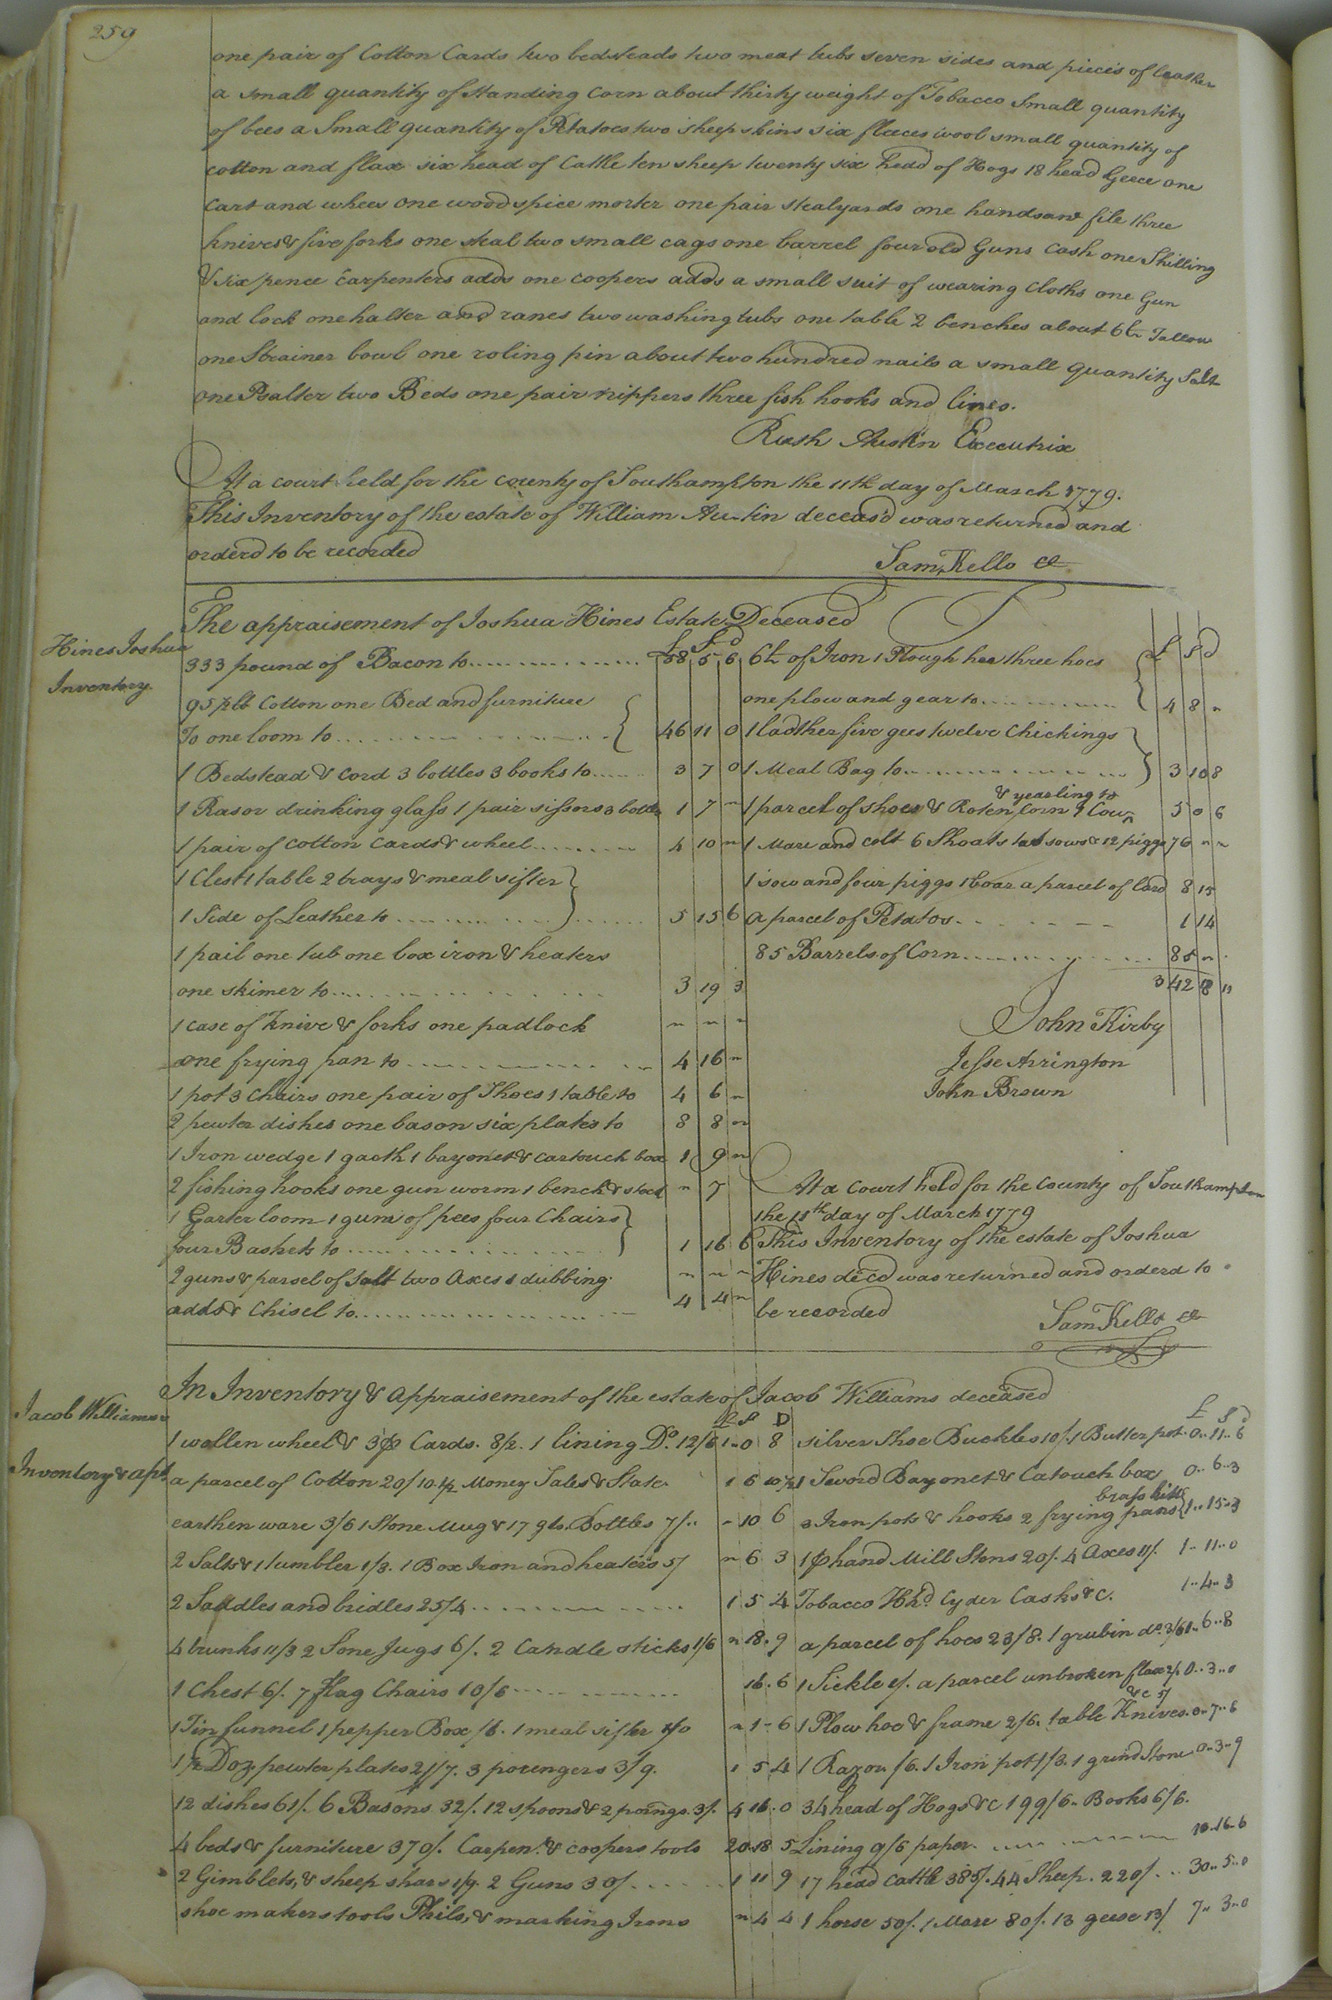 259
one pair of Cotton Cards two bedsteads two meat tubs seven sides and pieces of leather
a small quantity of standing Corn about thirty weight of Tobacco Small quantity
of bees a Small quantity of Petatoes two sheep skins six fleeces wool small quantity of
cotton and flax six head of Cattle ten sheep twenty six head of Hogs 18 head Geece one
Cart and whees one wood spice morter one pair stealyards one handsaw file three
knives & five forks one steal two small cags one barrel four old Guns Cash one Shilling
& six pence Carpenters adds one coopers adds a small suit of wearing Cloths one Gun
and lock one halter and ranes two washing tubs one table 2 benches about 6 lb Tallow
one Strainer bowl one roling pin about two hundred nails a small quantity Salt
one Psalter two Beds one pair nippers three fish hooks and lines.
Ruth Austin Executrix
At a court held for the county of Southampton the 11th day of March 1779.
This Inventory of the estate of William Austin deceas'd was returned and
orderd to be recorded
Sam. Kello
Hines Joshua
Inventory.
The appraisement of Joshua Hines Estate Deceased
£ S d
333 pound of Bacon to 58 5 6
95½ lb Cotton one Bed and furniture
To one loom to 46 11 0
1 Bedstead & Cord 3 bottles 3 books to 3 7 0
1 Rasor drinking glass 1 pair sissors 3 bottls 1 7 "
1 pair of cotton Cards & wheel 4 10 "
1 Chest 1 table 2 trays & meal sifter
1 Side of Leather to 5 15 6
1 pail one tub one box iron & heaters
one skimer to 3 19 3
1 case of Knive & forks one padlock " " "
one frying pan to 4 16 "
1 pot 3 Chairs one pair of Shoes 1 table to 4 6 "
2 pewter dishes one bason six plates to 8 8 "
1 Iron wedge 1 1 bayonet & cartouch box 1 9 "
2 fishing hooks one gun worm 1 bench & stock " 7
1 Garter loom 1 gum of pees four Chairs
four Baskets to 1 16 6
2 guns & parsel of salt two Axes 1 dubbing " " "
adds & Chisel to 4 4 "
£ S D
6 lb of Iron 1 Plough hoe three hoes
one plow and gear to 4 8 "
1 ladther five gees twelve Chickings
1 Meal Bag to 3 10 8
& yearling to
1 parcel of shoes & Roten Corn 1 Cow 5 0 6
1 Mare and colt 6 Shoats two sows & 12 piggs 76 " "
1 sow and four piggs 1 boar a parcel of lard 8 15
a parcel of Petatos 1 14
85 Barrels of Corn 85 "
342 18 11
John Kirby
Jesse Arrington
John Brown
At a Court held for the County of Southampton
the 11th day of March 1779
This Inventory of the estate of Joshua
Hines dec'd was returned and orderd to
be recorded
Sam Kello
Jacob Williams
Inventory & apt.
In Inventory & appraisement of the estate of Jacob Williams deceased
£ S D
1 wollen wheel & 3 pr Cards. 8/2. 1 lining Do. 12/6 1 0 8
a parcel of Cotton 20/10½ Money Sales & State 1 6 10½
earthen ware 3/6 1 Stone Mug & 17 qts. Bottles 7/ " 10 6
2 Salts & 1 tumbler 1/3. 1 Box Iron and heaters 5/ " 6 3
2 Saddles and bridles 25/4 1 5 4
4 trunks 11/3 2 Sone Jugs 6/. 2 Candle sticks 1/6 " 18 9
1 Chest 6/. 7 flag Chairs 10/6 16 6
1 Tin funnel 1 pepper Box /6. 1 meal sifter 1/0 " 1 6
1½ Doz pewter plates 21/7. 3 porrengers 3/9. 1 5 4
12 dishes 61/. 6 Basons 32/. 12 spoons & 2 3/. 4 16 0
4 beds & furniture 370/. Carpen. & coopers tools 20 18 5
2 Gimblets, & sheep shars 1/9. 2 Guns 30/ 1 11 9
shoe makers tools Phils, & marking Irons " 4 4
£ S d
silver Shoe Buckles 10/. 1 Butter pot 0 11 6
1 Sword Bayonet & Catouch box 0 6 3
brass kittle
3 Iron pots & hooks 2 frying pans 1 15 3
1 pr hand Mill Stons 20/. 4 Axes 11/. 1 11 0
Tobacco Hhd. Cyder Casks &c. 1 4 3
a parcel of hoes 23/8. 1 grubin do. 3/ 1 6 8
1 Sickle 1/. a parcel unbroken flax 2/. 0 3 0
&c 5/
1 Plow hoe & frame 2/6. table Knives 0 7 6
1 Razou /6. 1 Iron pot 1/3. 1 grind Stone 0 3 9
34 head of Hogs &c 199/6. Books 6/6.
Lining 9/6 paper 10 16 6
17 head cattle 385/. 44 Sheep. 220/. 30 5 0
1 horse 50/. 1 Mare 80/. 13 geese 13/ 7 3 0